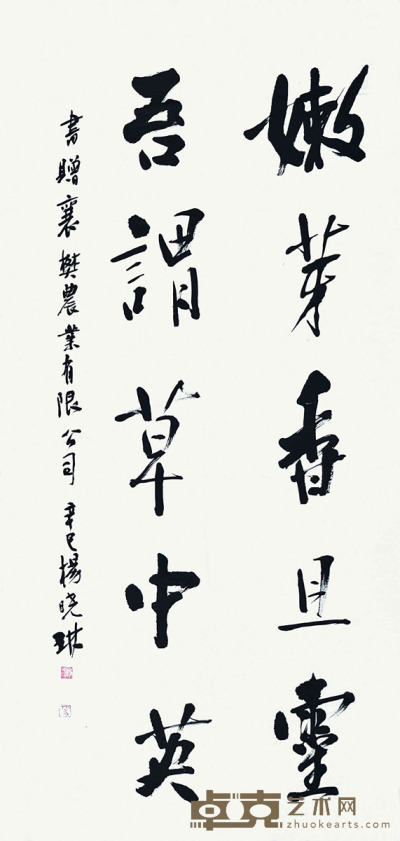 嫩芽香且靈
吾謂草中英
書贈襄樊農業有限公司 辛巳 楊晓琳
卓克艺术网
zhuokearts.com